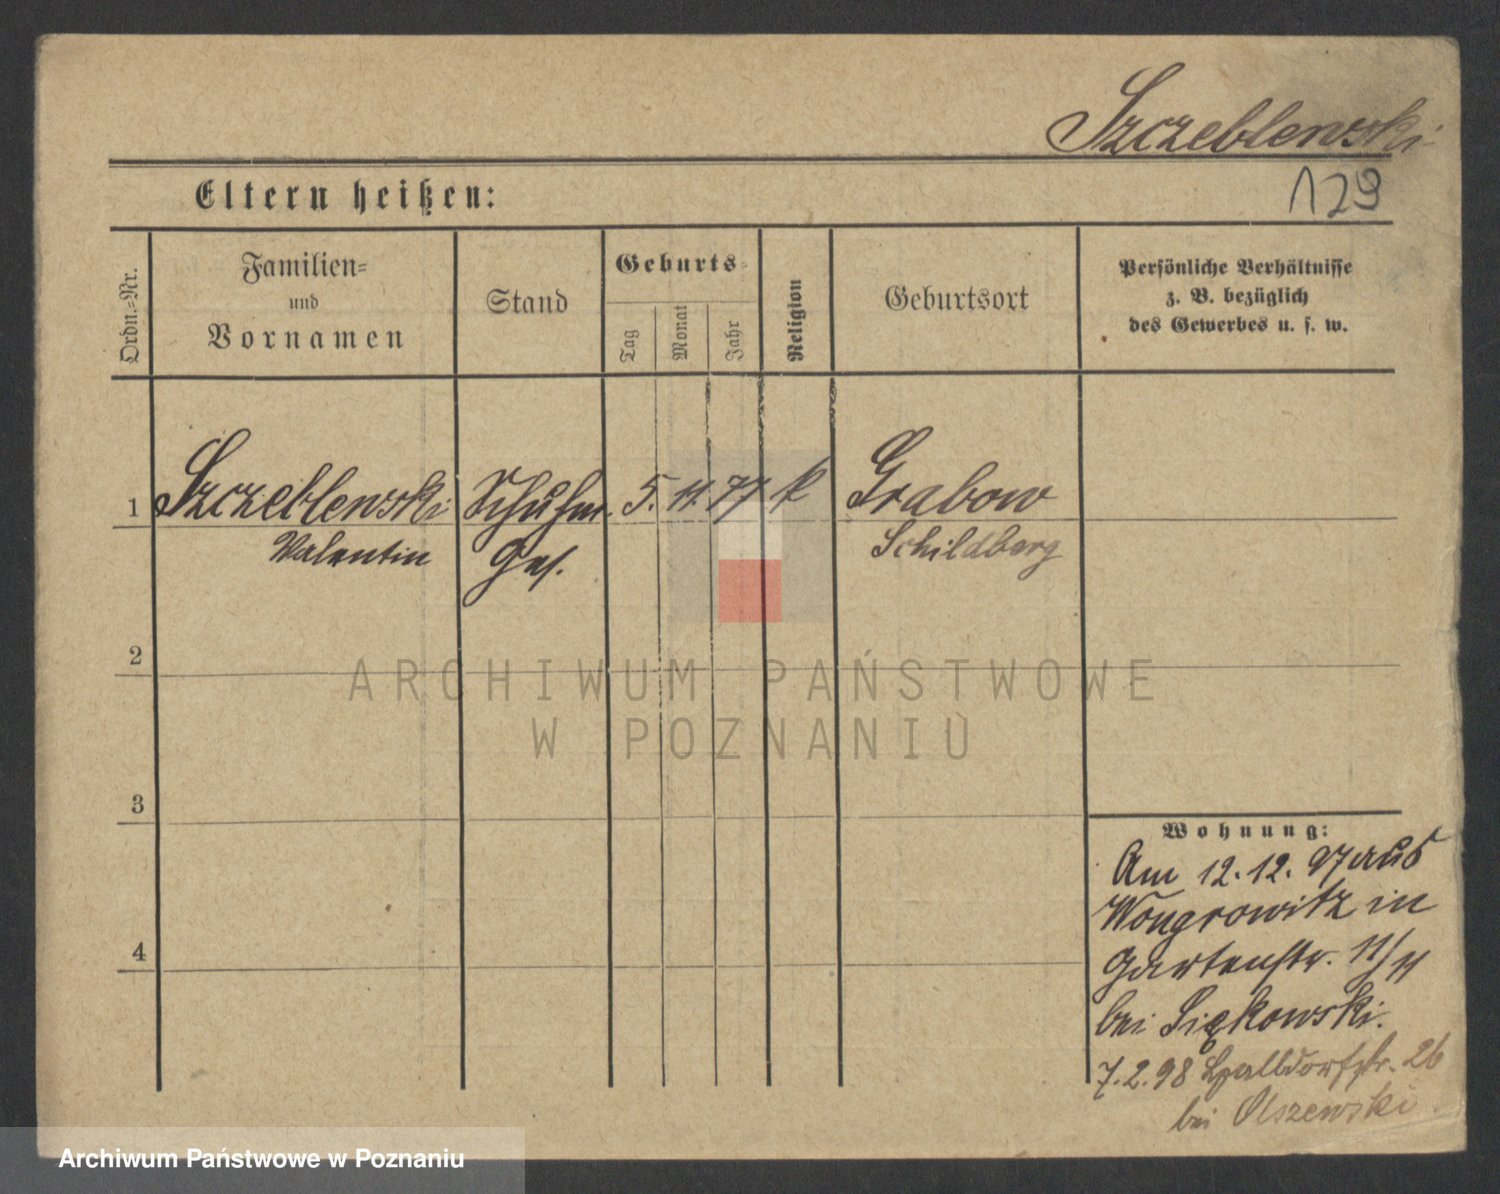 Szczeblewski
129
Eltern heißen:
Ordn.=Nr.
Familien=
und
Vornamen
Stand
Geburts=
Tag
Monat
Jahr
Religion
Geburtsort
Persönliche Verhältnisse
z. B. bezüglich
des Gewerbes u. s. w.
1 Szczeblewski Schuhm. 5. 11. 77 k Grabow
Valentin Ges. Schildberg
2
ARCHIWUM PAŃSTWOWE
W POZNANIU
3
Wohnung:
Am 12.12.97 aus
Wongrowitz in
4
Gartenstr. 11/11
bei Siękowski.
7.2.98 Halldorfstr. 26
bei Olszewski.
Archiwum Państwowe w Poznaniu